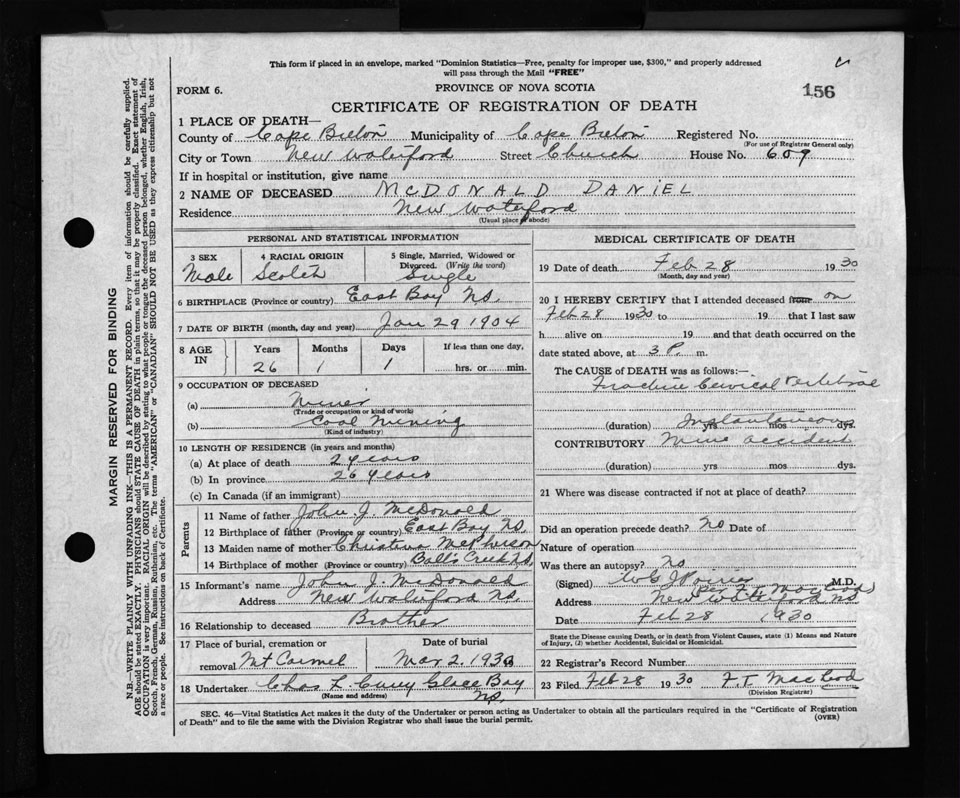 This form if placed in an envelope, marked "Dominion Statistics—Free, penalty for improper use, $300," and properly addressed
will pass through the Mail "FREE"
FORM 6.
PROVINCE OF NOVA SCOTIA
156
CERTIFICATE OF REGISTRATION OF DEATH
1 PLACE OF DEATH—
County of Cape Breton Municipality of Cape Breton Registered No.
(For use of Registrar General only)
City or Town New Waterford Street Church House No. 609
If in hospital or institution, give name
2 NAME OF DECEASED MCDONALD DANIEL
Residence New Waterford
(Usual place of abode)
PERSONAL AND STATISTICAL INFORMATION
3 SEX 4 RACIAL ORIGIN 5 Single, Married, Widowed or
Divorced. (Write the word)
Male Scotch Single
6 BIRTHPLACE (Province or country) East Bay NS.
7 DATE OF BIRTH (month, day and year) Jan 29 1904
8 AGE IN Years Months Days If less than one day,
26 1 1 hrs. or min.
9 OCCUPATION OF DECEASED
(a) Miner
(Trade or occupation or kind of work)
(b) Coal Mining
(Kind of industry)
10 LENGTH OF RESIDENCE (in years and months)
(a) At place of death 2 years
(b) In province 26 years
(c) In Canada (if an immigrant)
Parents
11 Name of father John J. McDonald
12 Birthplace of father (Province or country) East Bay NS.
13 Maiden name of mother Christina McPherson
14 Birthplace of mother (Province or country) Ball's Creek N.S.
15 Informant's name John J. McDonald
Address New Waterford NS.
16 Relationship to deceased Brother
17 Place of burial, cremation or Date of burial
removal Mt Carmel Mar 2. 1930
18 Undertaker Chas L. Curry Glace Bay
(Name and address) NS.
MEDICAL CERTIFICATE OF DEATH
19 Date of death Feb 28 1930
(Month, day and year)
20 I HEREBY CERTIFY that I attended deceased from on
Feb 28 1930 to 19 that I last saw
h alive on 19 and that death occurred on the
date stated above, at 3 P. m.
The CAUSE of DEATH was as follows:
Fracture Cervical Vertebrae
(duration) Instantaneous yrs mos dys.
CONTRIBUTORY Mine accident
(duration) yrs mos dys.
21 Where was disease contracted if not at place of death?
Did an operation precede death? No Date of
Nature of operation
Was there an autopsy? No
(Signed) Poirier M.D.
Address New Waterford NS
Date Feb 28 1930
State the Disease causing Death, or in death from Violent Causes, state (1) Means and Nature
of Injury, (2) whether Accidental, Suicidal or Homicidal.
22 Registrar's Record Number
23 Filed Feb 28 1930 F.T. MacLeod
(Division Registrar)
SEC. 46—Vital Statistics Act makes it the duty of the Undertaker or person acting as Undertaker to obtain all the particulars required in the "Certificate of Registration
of Death" and to file the same with the Division Registrar who shall issue the burial permit.
(OVER)
MARGIN RESERVED FOR BINDING
N.B.—WRITE PLAINLY WITH UNFADING INK—THIS IS A PERMANENT RECORD. Every item of information should be carefully supplied.
AGE should be stated EXACTLY. PHYSICIANS should STATE CAUSE OF DEATH in plain terms, so that it may be properly classified. Exact statement of
OCCUPATION is very important. RACIAL ORIGIN will be described by stating to what people or tongue the deceased person belonged, whether English, Irish,
Scotch, French, German, Russian, Ruthenian, etc. The terms "AMERICAN" or "CANADIAN" SHOULD NOT BE USED as they express citizenship but not
a race or people. See instructions on back of Certificate.